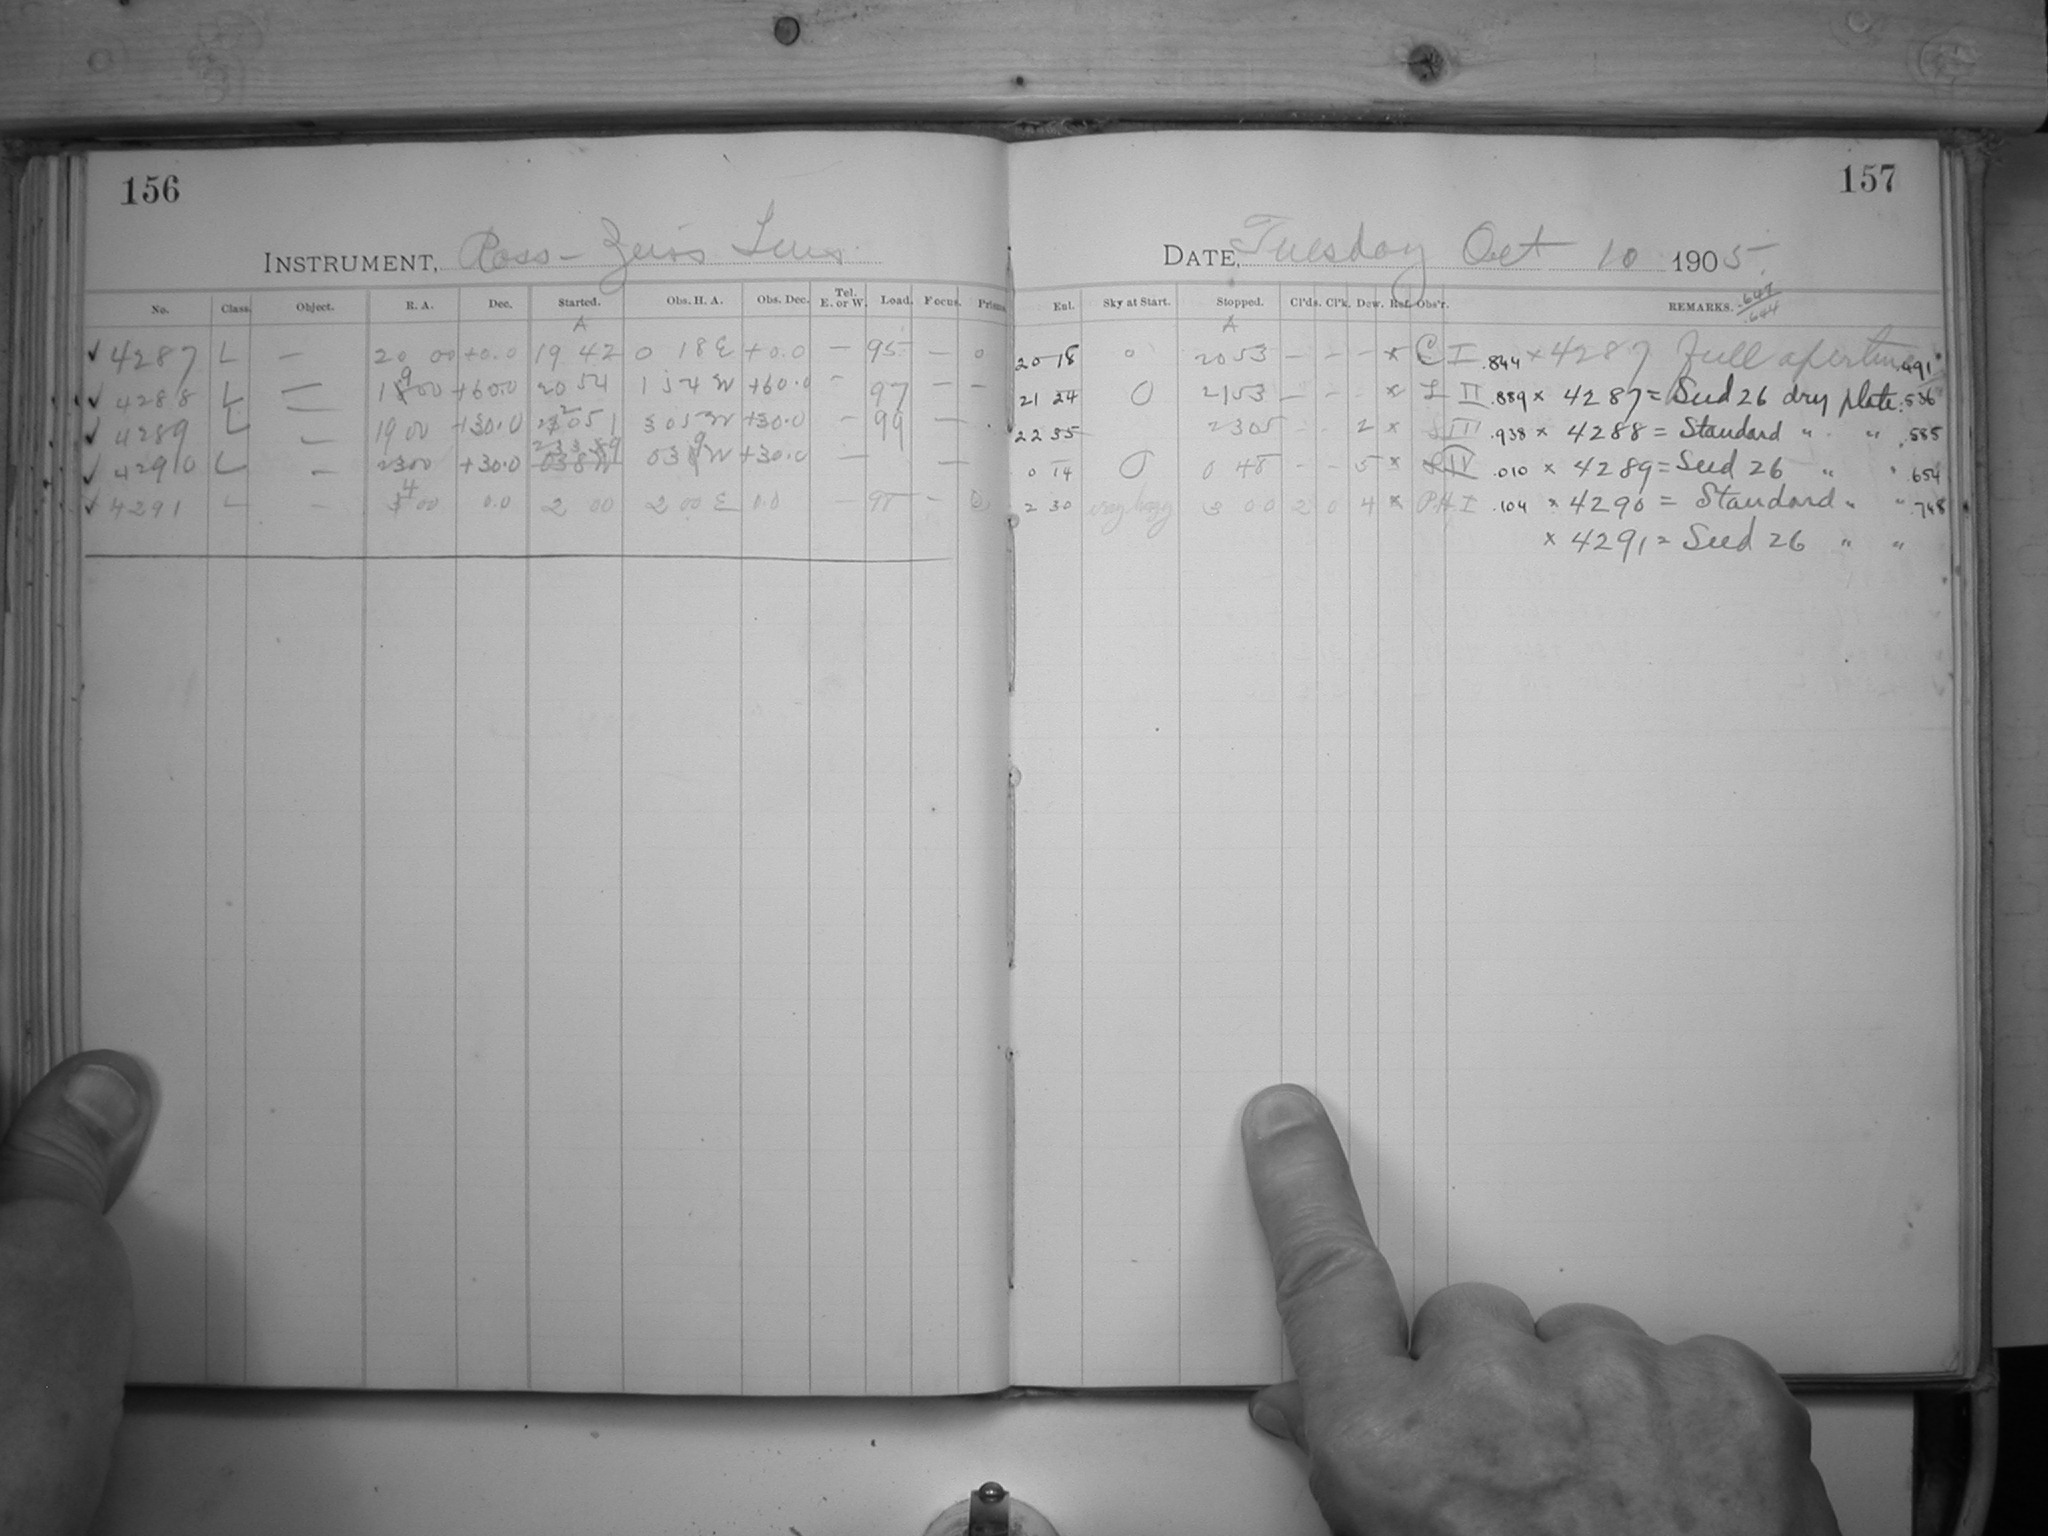 156
INSTRUMENT, Ross-Zeiss Lens
No. Class. Object. R. A. Dec. Started. Obs. H. A. Obs. Dec. Tel. E. or W. Load. Focus. Prism
A
✓ 4287 L — 20 00 +0.0 19 42 0 18 E +0.0 — 95 — 0
✓ 4288 L — 19 00 +60.0 20 54 1 54 W +60.0 - 97 — —
✓ 4289 L — 19 00 +30.0 22 05 3 05 W +30.0 - 99
✓ 4290 L — 23 00 +30.0 23 39 0 39 W +30.0 — —
✓ 4291 L - 4 00 0.0 2 00 2 00 E 0.0 — -
157
DATE, Tuesday Oct 10 1905.
Eul. Sky at Start. Stopped. Cl'ds. Cl'k. Dew. Ref. Obs'r. REMARKS. .647 .644
A
20 18 0 20 53 — — — × C I .844 × 4287 Full aperture .491
21 24 0 21 53 - - - × L II .889 × 4287 = Seed 26 dry plate .536
22 35 23 05 - - 2 × L III .938 × 4288 = Standard " " .585
0 14 0 0 48 - - 5 × L IV .010 × 4289 = Seed 26 " " .654
2 30 very hazy 3 00 2 0 4 × PH I .104 × 4290 = Standard " " .748
× 4291 = Seed 26 " "